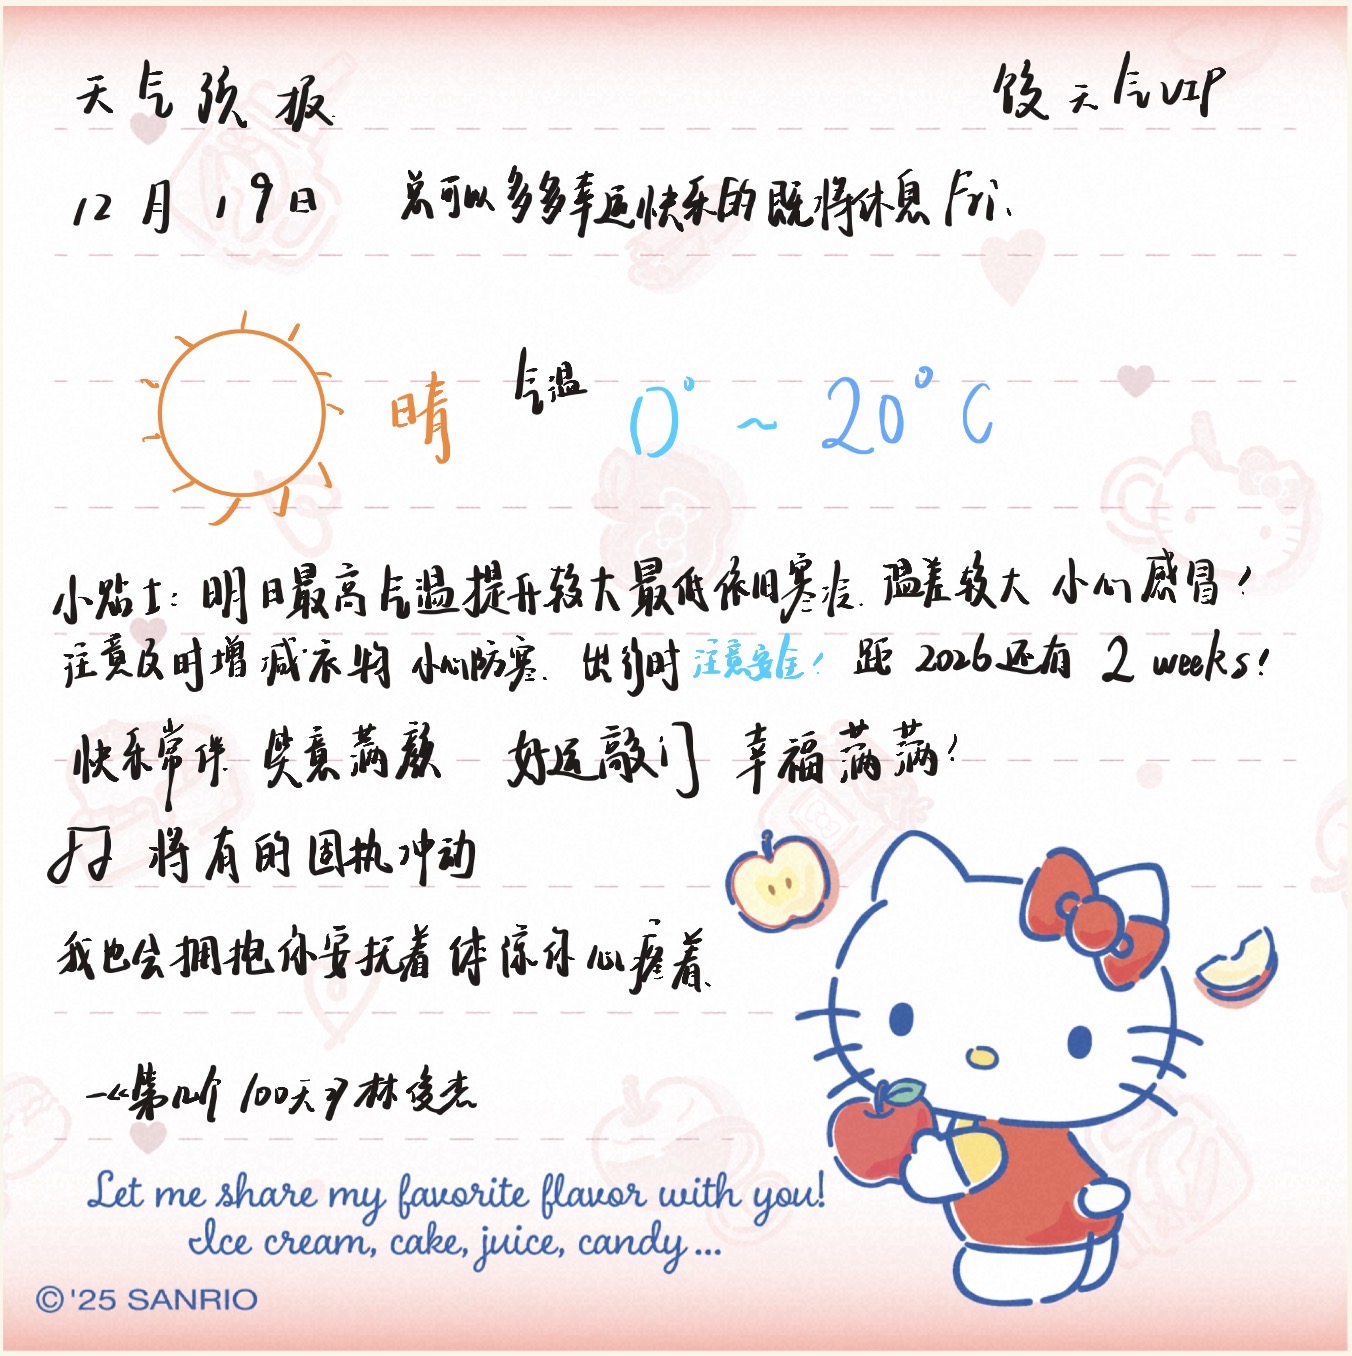 天气预报 饺天气VIP
12月19日 总可以多多幸运快乐的既将休息 Fri.
晴 气温 0°~20°C
小贴士: 明日最高气温提升较大最低依旧寒冷. 温差较大 小心感冒!
注意及时增减衣物 小心防寒. 出行时注意安全! 距 2026还有 2 weeks!
快乐常伴 笑意满颜 好运敲门 幸福满满!
♫ 将有的固执冲动
我也会拥抱你安抚着 体谅你心疼着.
—《第几个100天》林俊杰
Let me share my favorite flavor with you!
Ice cream, cake, juice, candy...
©'25 SANRIO